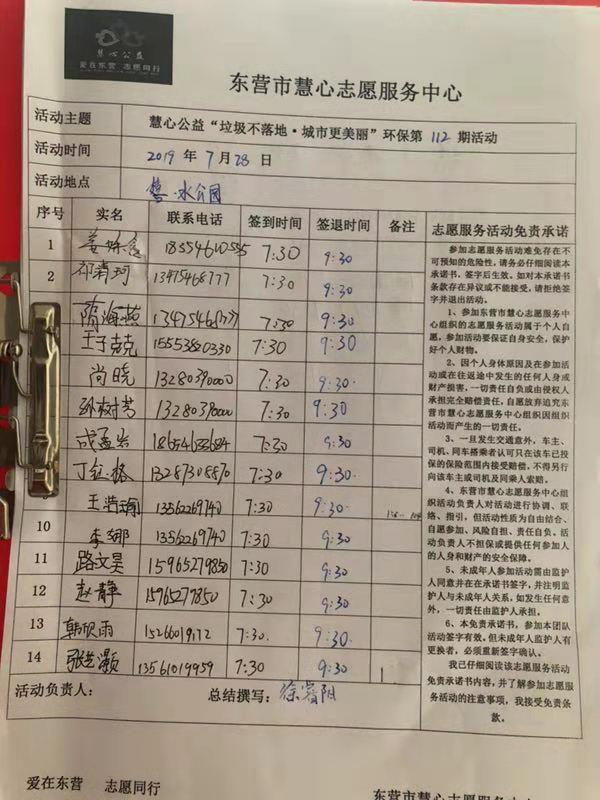 慧心公益
爱在东营 志愿同行
东营市慧心志愿服务中心
活动主题 慧心公益“垃圾不落地·城市更美丽”环保第 112 期活动
活动时间 2019 年 7 月 28 日
活动地点 水公园
序号 实名 联系电话 签到时间 签退时间 备注
1 姜 7:30 9:30
2 13475468777 7:30 9:30
隋海燕 7:30 9:30
王子尧 15553820330 7:30 9:30
尚晓 13280390000 7:30 9:30
孙树芳 13280390000 7:30 9:30
成孟岩 7:30 9:30
丁 13287308870 7:30 9:30
王浩瑜 13562269740 7:30 9:30
10 李娜 13562269740 7:30 9:30
11 路文昊 15965279850 7:30 9:30
12 赵静 15965279850 7:30 9:30
13 韩欣雨 15266019172 7:30 9:30
14 张艺灏 13561019959 7:30 9:30
活动负责人： 总结撰写：徐睿阳
志愿服务活动免责承诺
参加志愿服务活动难免存在不
可预知的危险性，请务必仔细阅读本
承诺书，签字后生效。如对本承诺书
条款存在异议或不能接受，请拒绝签
字并退出活动。
1、参加东营市慧心志愿服务中
心组织的志愿服务活动属于个人自
愿，参加活动要保证自身安全，保护
好个人财物。
2、因个人身体原因及在参加活
动或在往返途中发生的任何人身或
财产损害，一切责任自负或由侵权人
承担完全赔偿责任，自愿放弃追究东
营市慧心志愿服务中心组织因组织
活动而产生的一切责任。
3、一旦发生交通意外，车主、
司机、同车搭乘者认可只在该车已投
保的保险范围内接受赔偿，不得另行
向该车主或司机及同乘人索赔。
4、东营市慧心志愿服务中心组
织活动负责人对活动进行协调、联
络、指引，但活动性质为自由结合、
自愿参加、风险自担、责任自负。活
动负责人不担保或提供任何参加人
的人身和财产的安全保障。
5、未成年人参加活动需由监护
人同意并在在承诺书签字，并注明监
护人与未成年人关系，如发生任何意
外，一切责任由监护人承担。
6、本免责承诺书，参加本团队
活动签字有效。但未成年人监护人有
更换者，必须重新签字确认。
我已仔细阅读该志愿服务活动
免责承诺书内容，并了解参加志愿服
务活动的注意事项，我接受免责条
款。
爱在东营 志愿同行
东营市慧心志愿服务中心